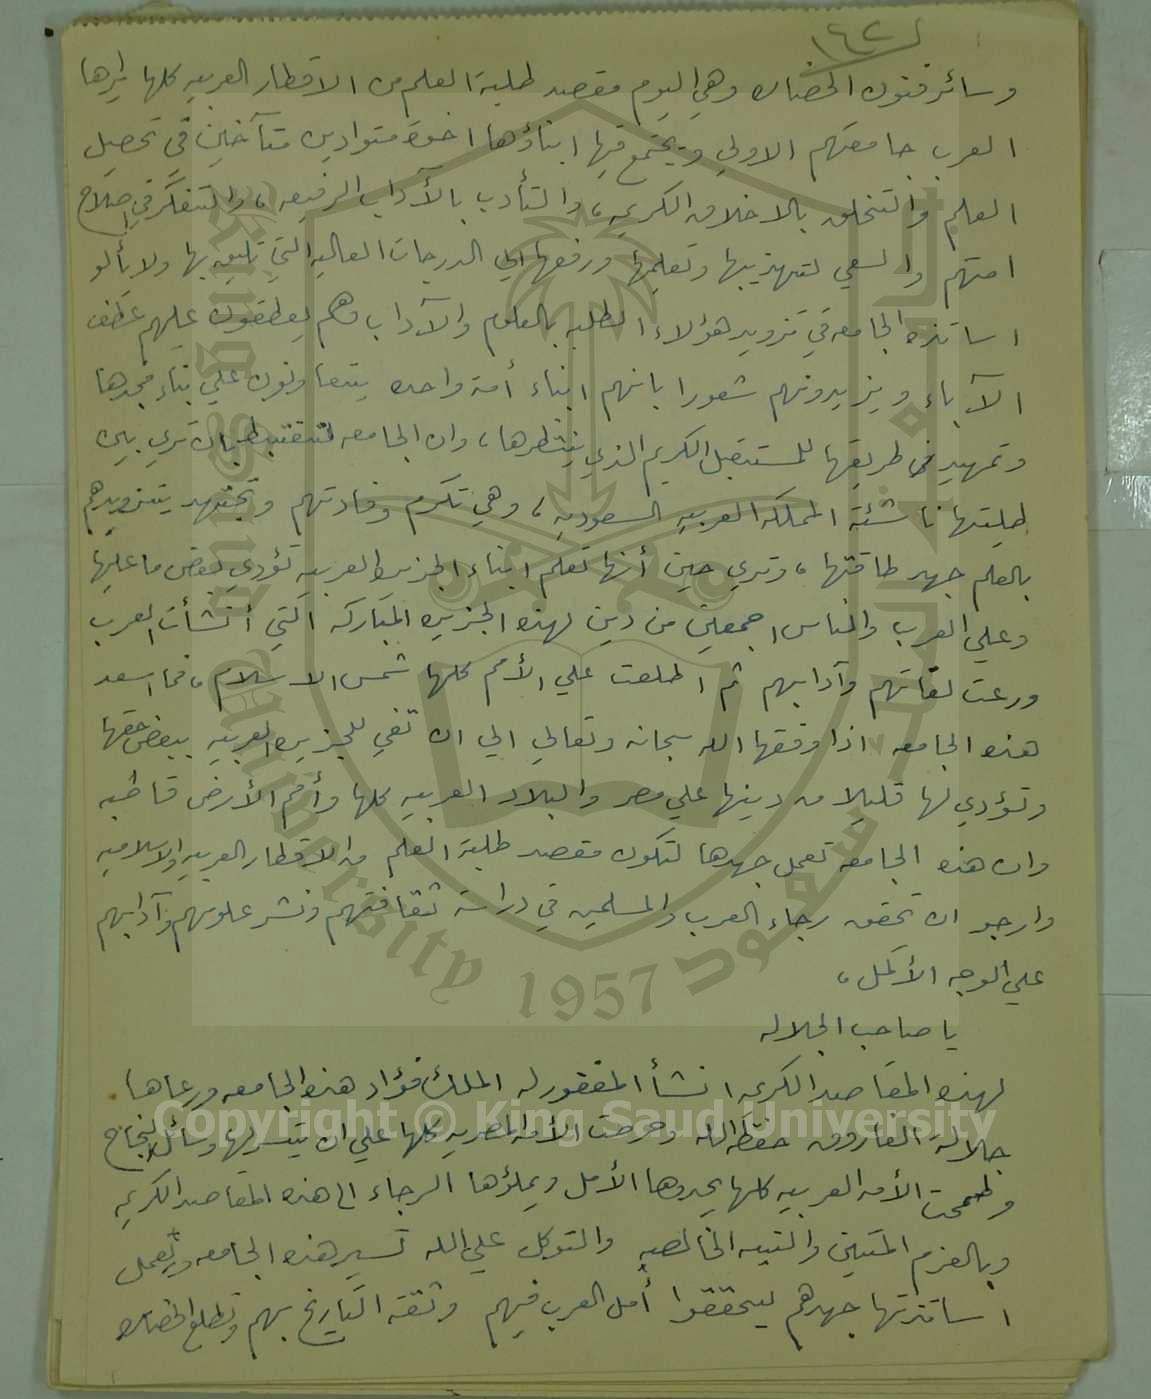 ١٤٢
وسائر فنون الحضاره وهي اليوم مقصد طلبة العلم من الاقطار العربيه كلها يراها
العرب جامعتهم الاولي ويجتمع فيها ابناؤها اخوة متوادين متآخين في تحصيل
العلم والتخلق بالاخلاق الكريمه، والتأدب بالآداب الرفيعه، والتفكر في اصلاح
امتهم والسعي لتهذيبها وتعليمها ورفعها الي الدرجات العاليه التي تليق بها ولا يألو
اساتذه الجامعه في تزويد هؤلاء الطلبه بالعلوم والآداب وهم يعطفون عليهم عطف
الآباء ويزيدونهم شعورا بانهم ابناء أمة واحده يتعاونون علي بناء مجدها
وتمهيد طريقها للمستقبل الكريم الذي ينتظرها، وان الجامعه لتغتبط بان تري بين
طلبتها ناشئة المملكه العربيه السعوديه، وهي تكرم وفادتهم وتجتهد بتزويدهم
بالعلم جهد طاقتها، وتري حين أنها تعلم ابناء الجزيره العربيه تؤدي بعض ما عليها
وعلي العرب والناس اجمعين من دين لهذه الجزيره المباركه التي أنشأت العرب
ورعت لغاتهم وآدابهم ثم اطلعت علي الأمم كلها شمس الاسلام، فما اسعد
هذه الجامعه اذا وفقها الله سبحانه وتعالي الي ان تفي للجزيره العربيه ببعض حقها
وتؤدي لها قليلا من دينها علي مصر والبلاد العربيه كلها وأمم الأرض قاطبه
وان هذه الجامعه تعمل جهدها لتكون مقصد طلبة العلم من الاقطار العربيه والاسلاميه
وارجو ان تحقق رجاء العرب والمسلمين في دراسة ثقافتهم ونشر علومهم وآدابهم
علي الوجه الأكمل،
يا صاحب الجلاله
لهذه المقاصد الكريمه انشأ المغفور له الملك فؤاد هذه الجامعه ورعاها
جلالة الفاروق حفظه الله وحرصت الأمه المصريه كلها علي ان تيسر لها وسائل النجاح
وطمحت الأمه العربيه كلها يحدوها الأمل ويملؤها الرجاء الي هذه المقاصد الكريمه
وبالعزم المتين والنيه الخالصه والتوكل علي الله تسير هذه الجامعه ويعمل
اساتذتها جهدهم ليحققوا أمل العرب فيهم وثقة التاريخ بهم وتطلع الحضاره
جامعة الملك سعود
King Saud University 1957
Copyright © King Saud University